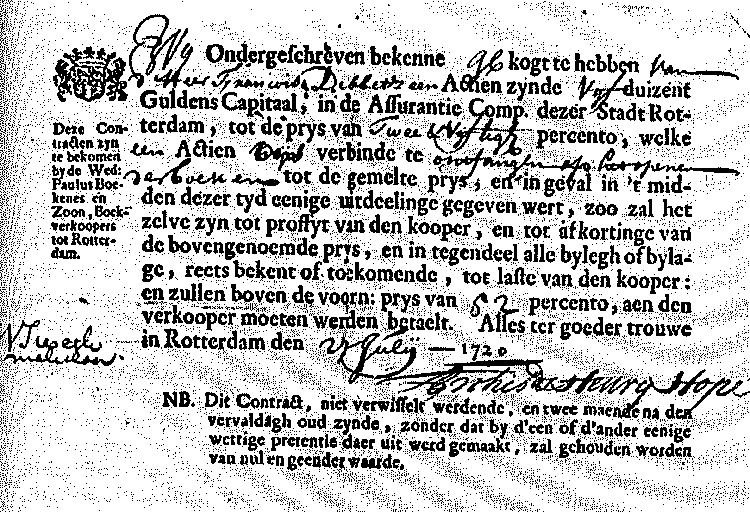 Wy Ondergeschreven bekenne gekogt te hebben van
d'Heer Francois Dibbetz een Actien zynde Vyf duizent
Guldens Capitaal, in de Assurantie Comp. dezer Stadt Rot-
terdam, tot de prys van Twee & Vyftigh percento, welke
een Actien verbinde te ontfangen op het oopenen
der boeken tot de gemelte prys, en in geval in 't mid-
den dezer tyd eenige uitdeelinge gegeven wert, zoo zal het
zelve zyn tot proffyt van den kooper, en tot afkortinge van
de bovengenoemde prys, en in tegendeel alle bylegh of byla-
ge, reets bekent of toekomende, tot laste van den kooper:
en zullen boven de voorn: prys van 52 percento, aen den
verkooper moeten werden betaelt. Alles ter goeder trouwe
in Rotterdam den July 1720
Hope
NB. Dit Contract, niet verwisselt werdende, en twee maende na den
vervaldagh oud zynde, zonder dat by d'een of d'ander eenige
wettige pretentie daer uit werd gemaakt, zal gehouden worden
van nul en geender waarde.
Deze Con-
tracten zyn
te bekomen
by de Wed:
Paulus Boe-
kenes en
Zoon, Boek-
verkoopers
tot Rotter-
dam.
makelaar.